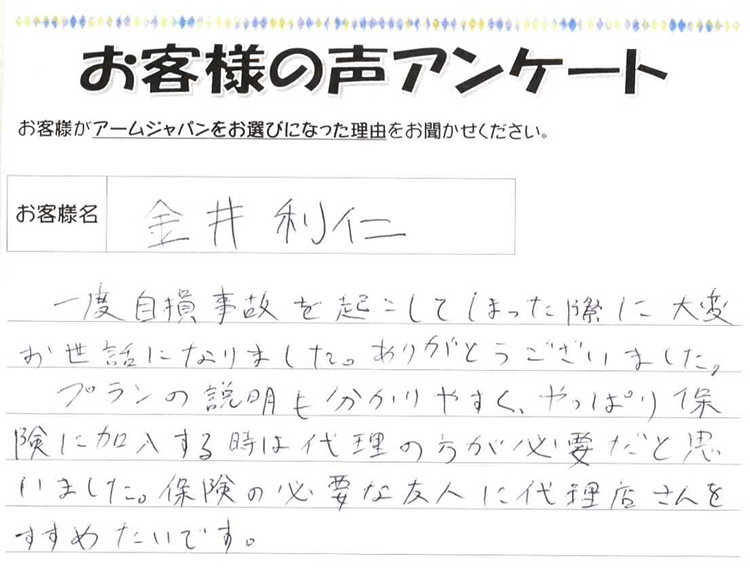 お客様の声アンケート
お客様がアームジャパンをお選びになった理由をお聞かせください。
お客様名 金井利仁
一度自損事故を起こしてしまった際に大変
お世話になりました。ありがとうございました。
プランの説明も分かりやすく、やっぱり保
険に加入する時は代理の方が必要だと思
いました。保険の必要な友人に代理店さんを
すすめたいです。